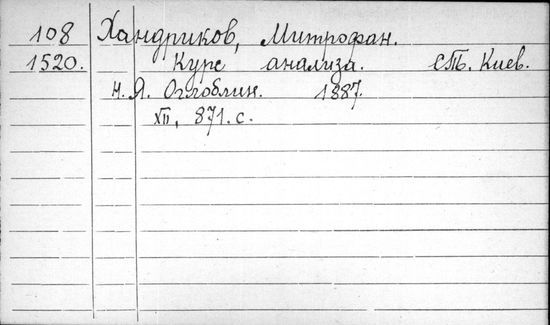 108 Хандриков, Митрофан.
1520. Курс анализа. СПб. Киев.
Н. Я. Оглоблин. 1887.
XII, 871. с.